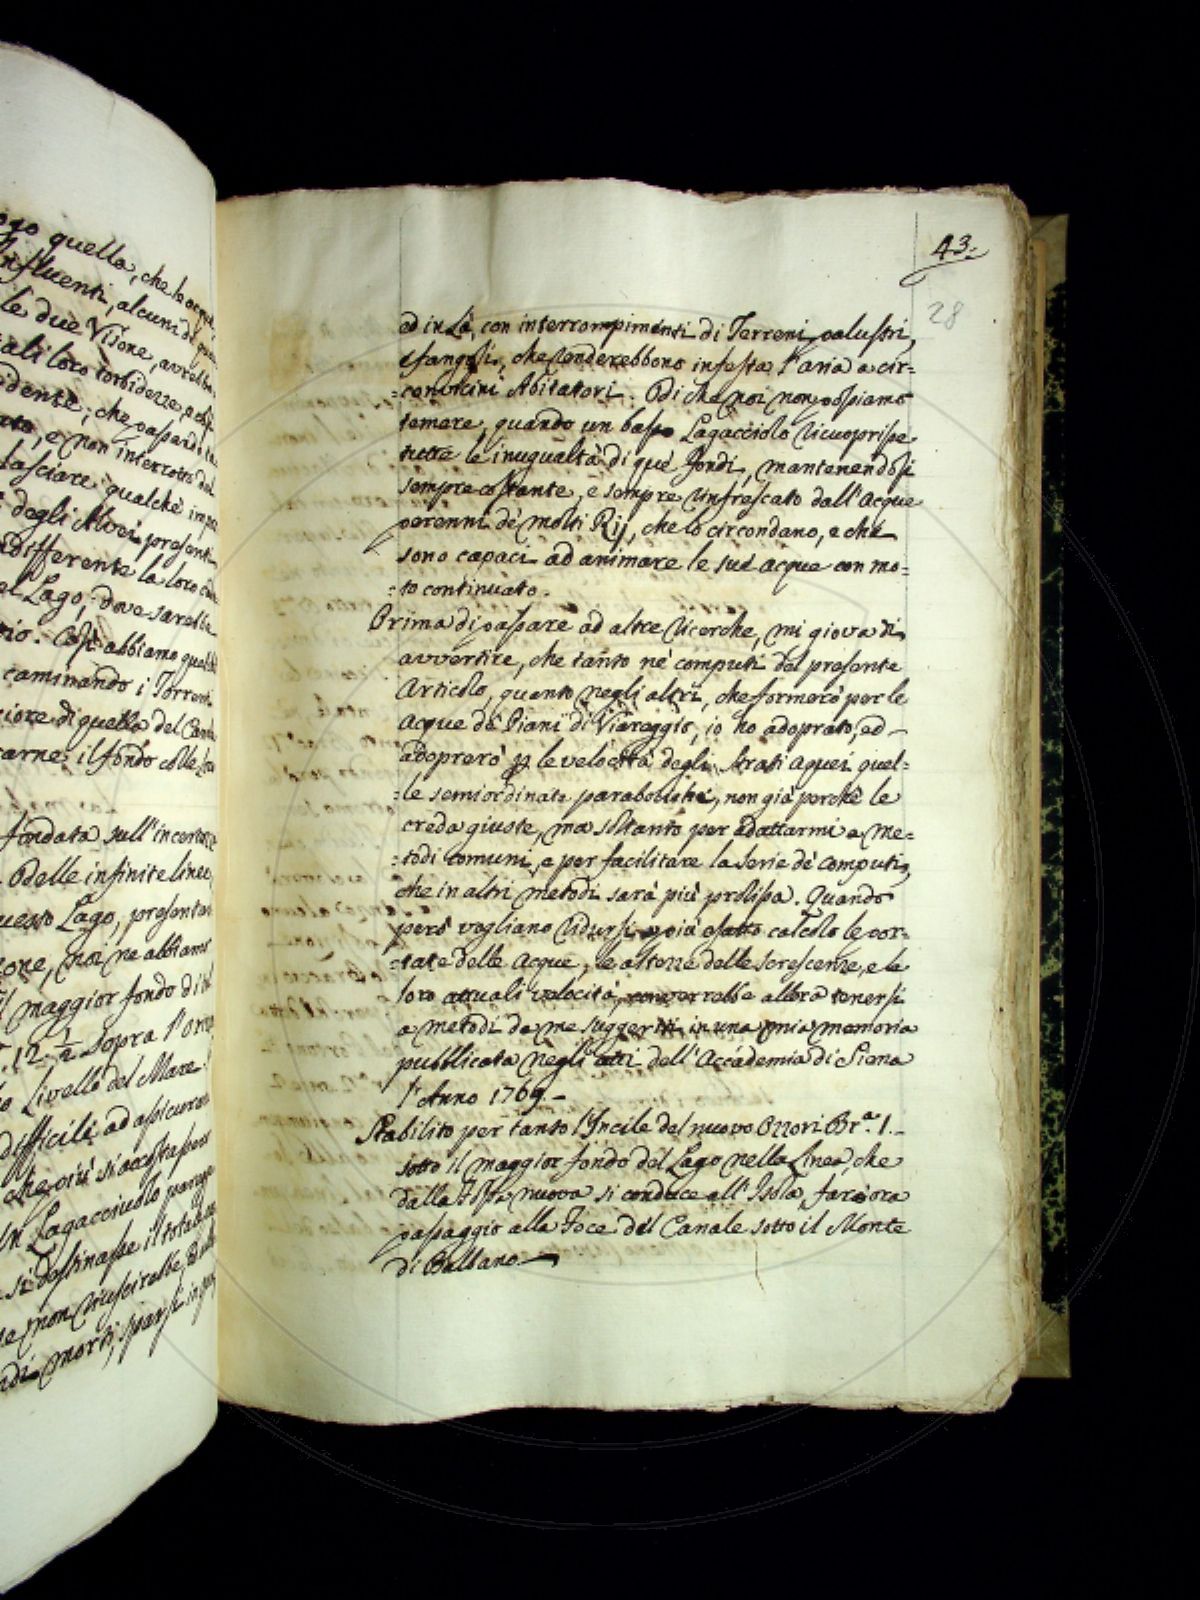 ogo quella, che la acque,
Influenti, alcuni de quali
le due Visone, avrebbe
iali loro torbidezze, e chi
dente; che passando, la
rato, e non interrotto dal
lasciare qualche impe
degli Alvei presenti
ndifferente la loro
el Lago; dove sarebbe
rio. Così abbiamo
caminando i Torrenti
riore di quello del
carne il fondo colle
fondata sull'incertezza
. Delle infinite linee,
uesto Lago, presentan
one, noi ne abbiamo
il maggior fondo di
. 12 ½ sopra l'
o Livello del Mare.
difficili ad assicurar
che più si accosta
un Lagacciuolo
si destinasse il totale
ne non riuscirebbe,
di morti, sparsi in
43.
28
ad in Là, con interrompimenti di Terreni palustri,
e fangosi, che renderebbono infesta l'aria a cir=
=convicini Abitatori. Di che noi non possiamo
temere, quando un basso Lagacciolo ricuoprisse
tutte le inugualtà di quei fondi, mantenendosi
sempre costante, e sempre rinfrescato dall'Acque
perenni de molti Rij, che lo circondano, e che
sono capaci ad animare le sue acque con mo=
=to continuato.
Prima di passare ad altre ricerche, mi giova di
avvertire, che tanto ne computi del presente
Articolo, quanto negli altri, che formerò per le
Acque de Piani di Viareggio, io ho adoprato, ed
adoprerò p le velocità degli Strati Aquei quel=
=le semiordinate paraboliche, non già perchè le
creda giuste, ma soltanto per adattarmi a me=
=todi comuni, e per facilitare la Serie de computi,
che in altri metodi sarà più prolissa. Quando
però vogliano ridursi a più esatto calcolo le por=
=tate delle Acque, le altezze delle Screscenze, e le
loro attuali velocità, converrebbe allora tenersi
a metodi da me suggeriti in una mia memoria
pubblicata negli atti dell'Accademia di Siena
l'Anno 1769.
Stabilito per tanto l'Incile del nuovo Ozzori Br.ª 1.
sotto il maggior fondo del Lago nella Linea, che
dalla Fossa nuova si conduce all'Isola, farò ora
passaggio alla Foce del Canale sotto il Monte
di Balbano.